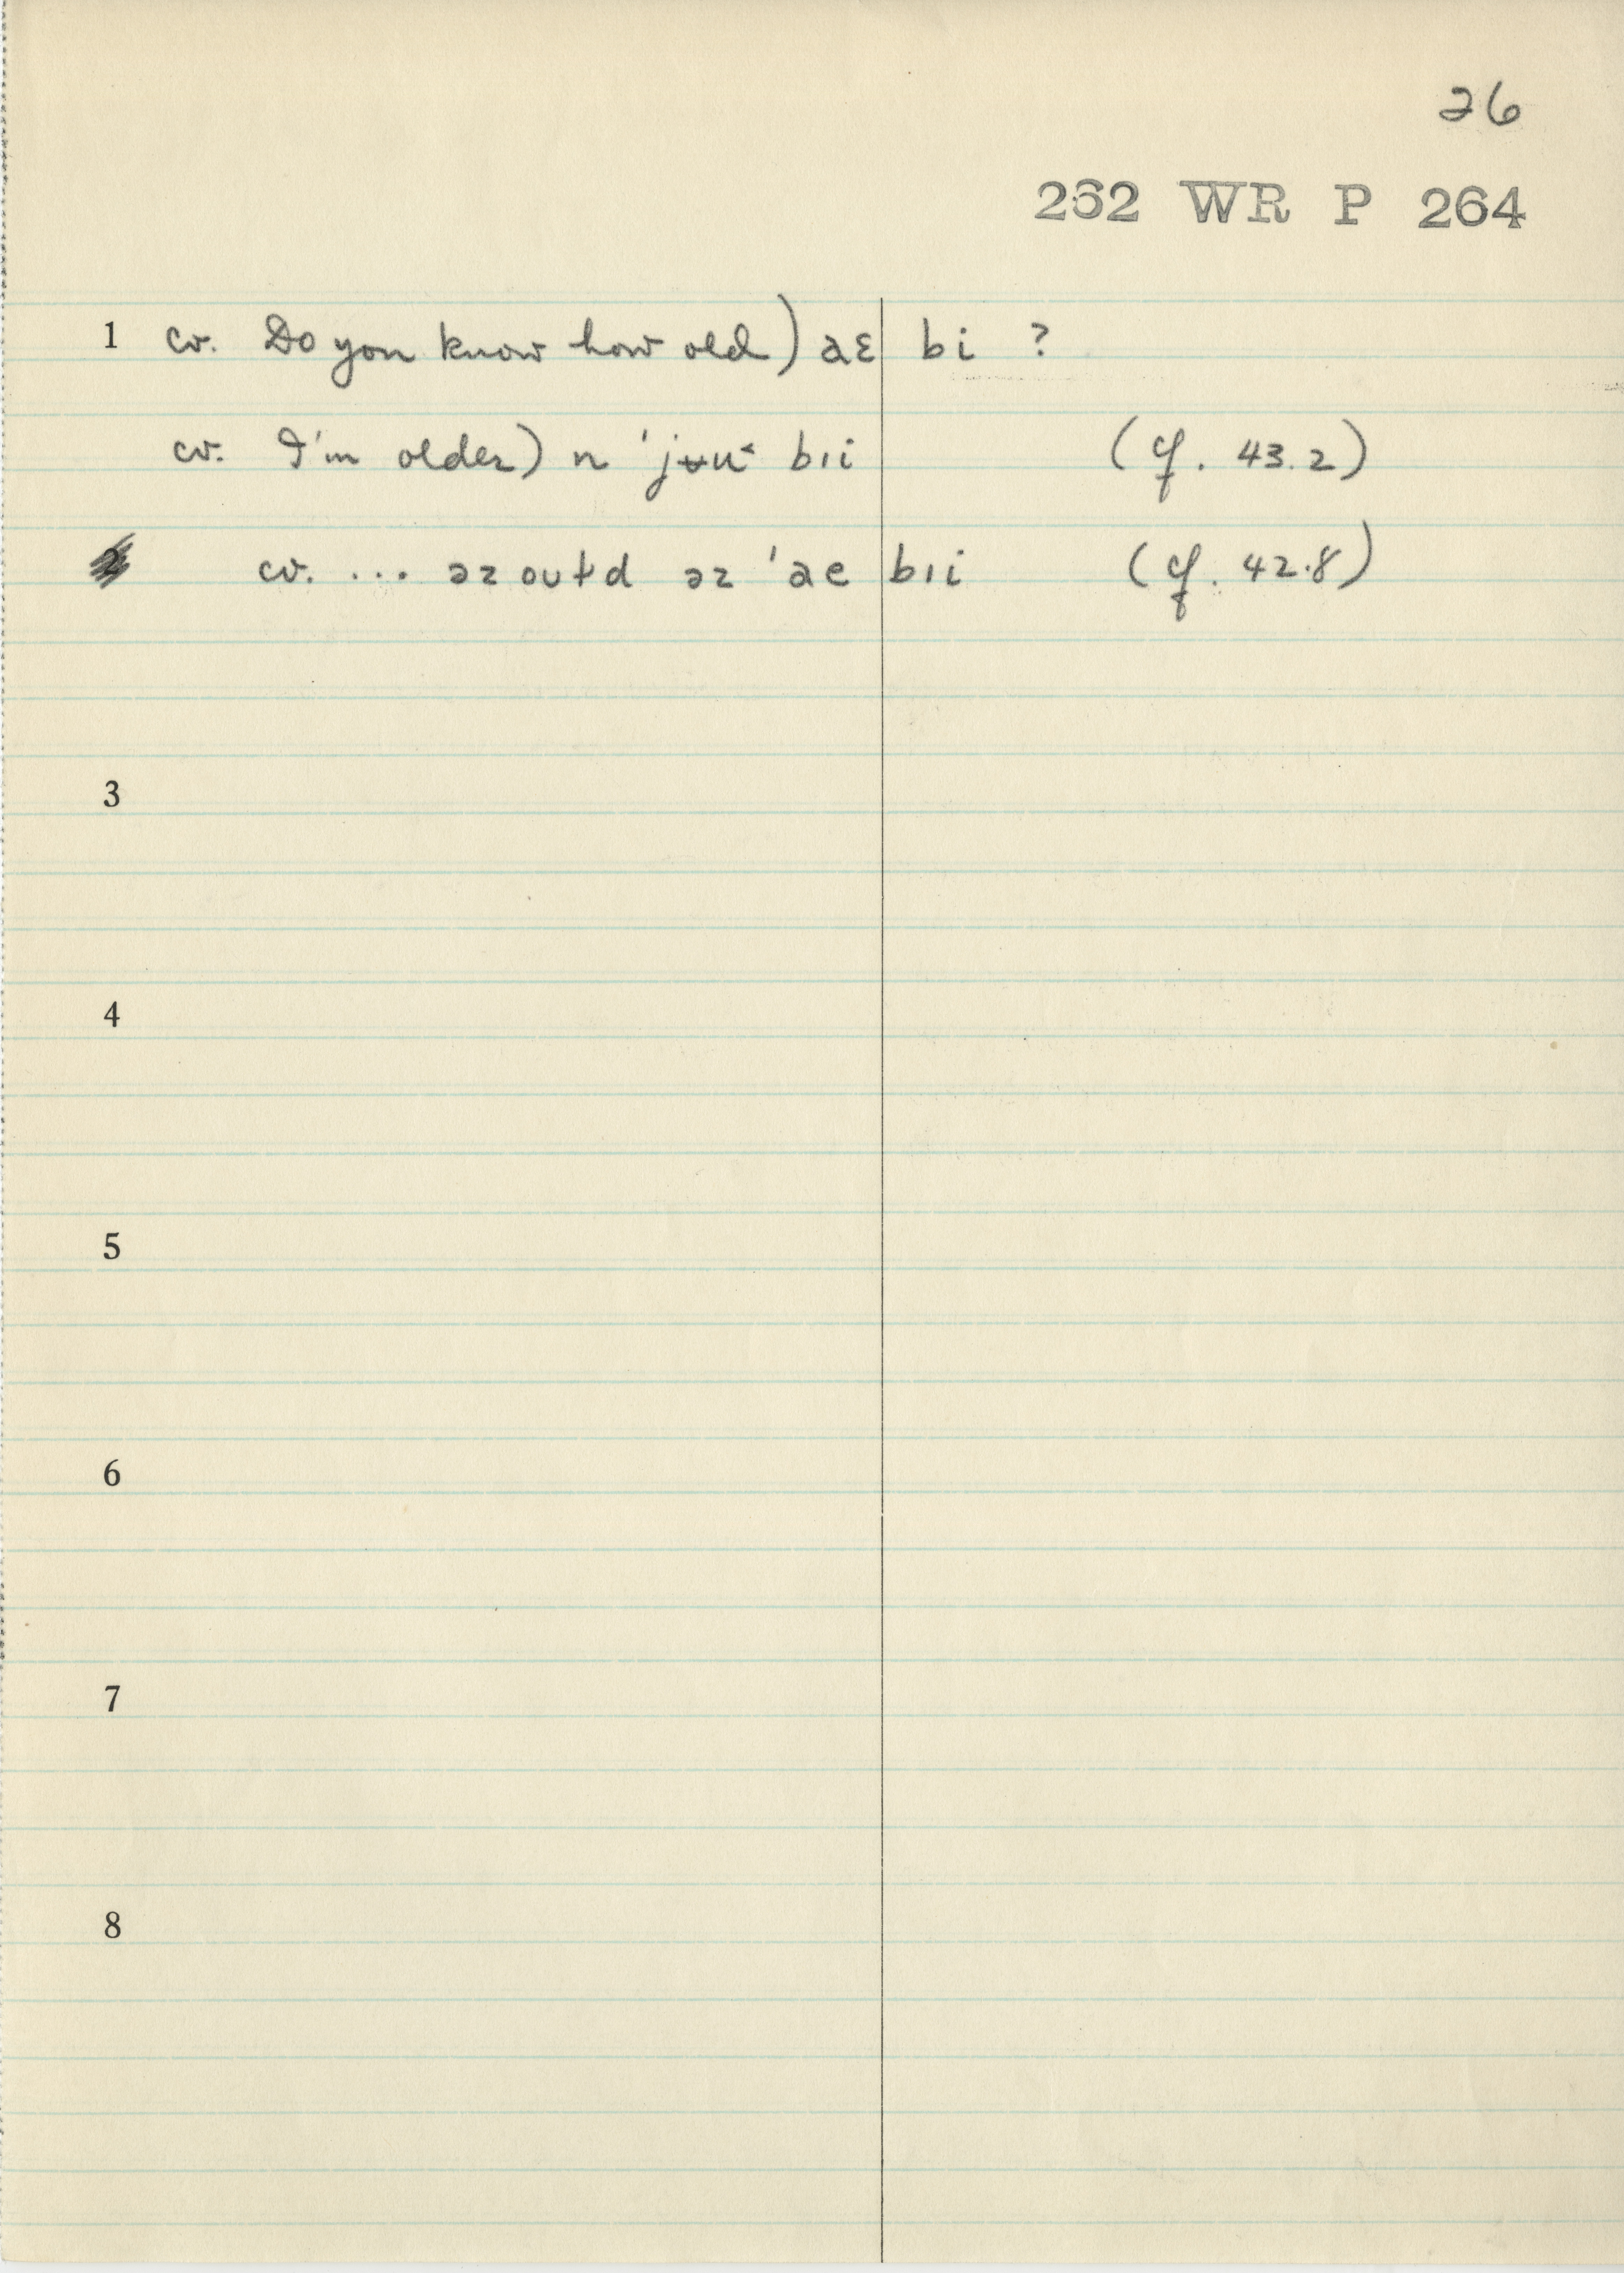 26
262 WR P 264
1 cv. Do you know how old) aɛ bi ?
cv. I'm older) n 'jʉu˂ bıi (cf. 43.2)
2 cv. ... əz oʊɫd əz 'ae bıi (cf. 42.8)
3
4
5
6
7
8